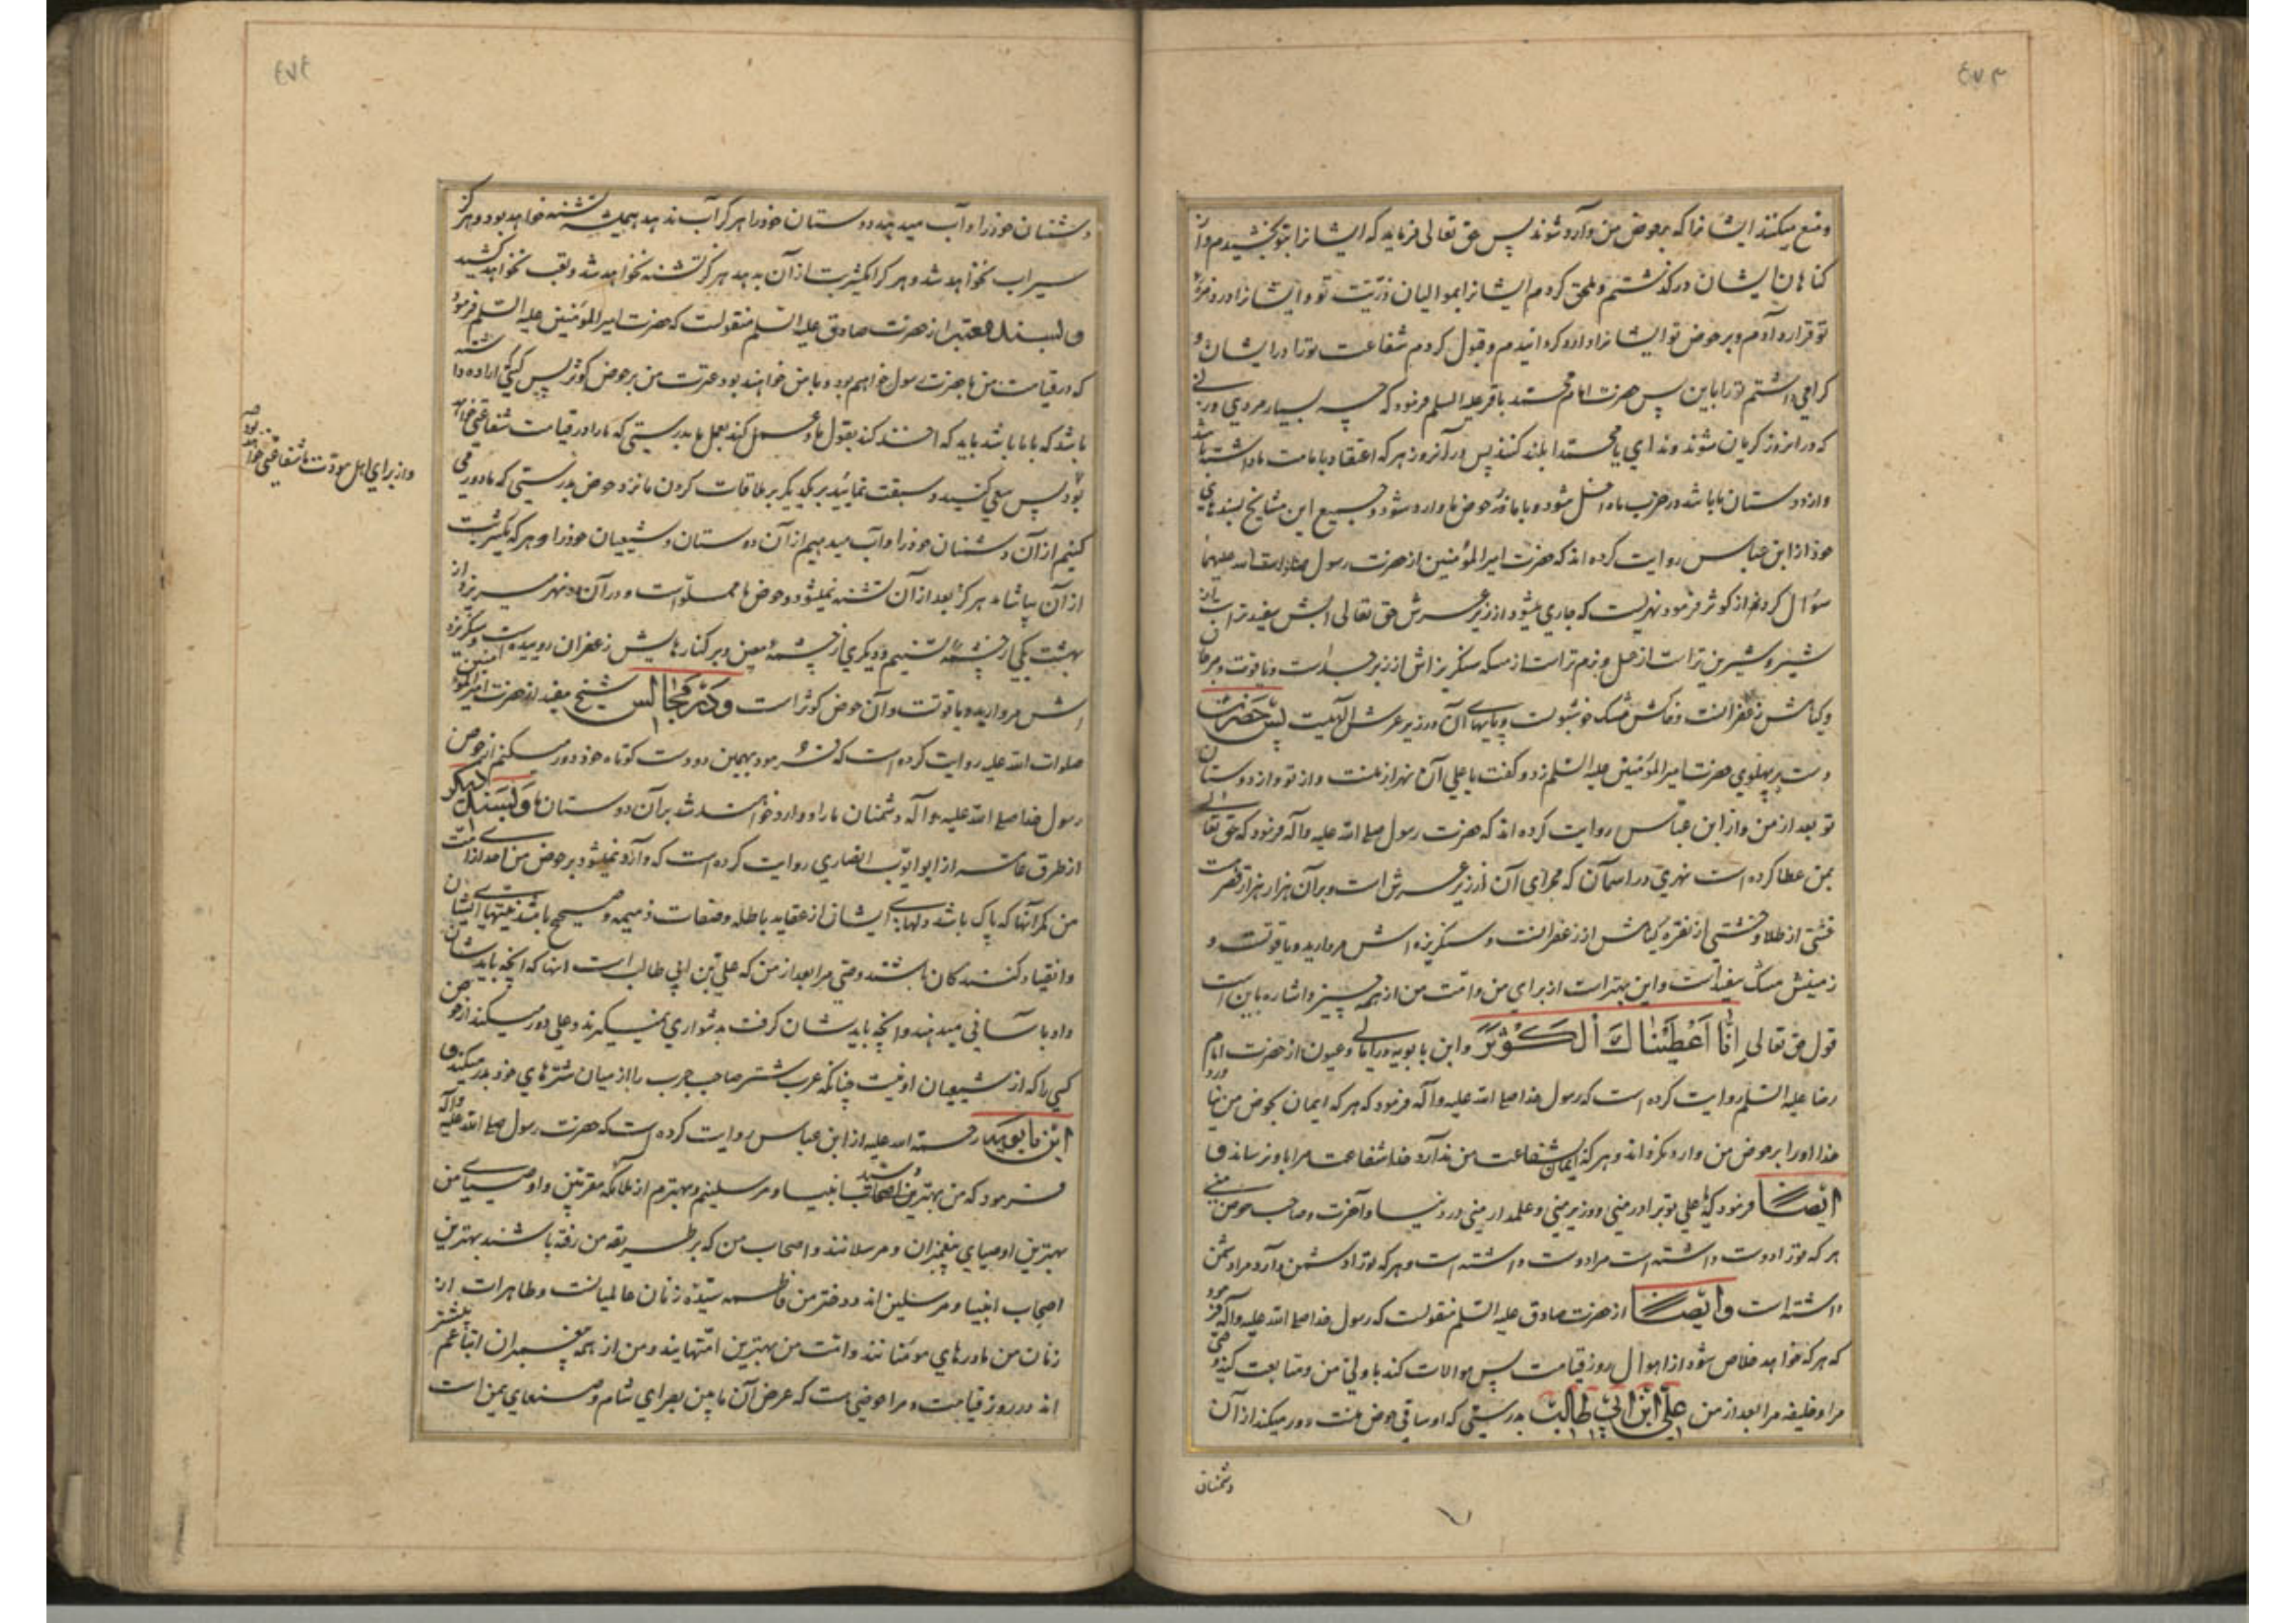 ٤٧٣
ومنع میکنند ایشانرا که بر حوض من وارد شوند پس حق تعالی فرماید که ایشانرا بتو بخشیدم و از
گناهان ایشان در گذشتم و ملحق کردم ایشانرا بموالیان ذرّیت تو و ایشانرا در زمرۀ
تو قرار دادم و بر حوض تو ایشانرا وارد گردانیدم و قبول کردم شفاعت تو را در ایشان و
گرامی داشتم تو را باین پس حضرت امام محمد باقر علیه السلم فرمود که چه بسیار مردی و زنی
که در انروز گریان شوند و ندای یا محمدا بلند کنند پس در آنروز هر که اعتقاد بامامت ما داشته باشد
و از دوستان ما باشد در حزب ما داخل شود و با ما نزد حوض ما وارد شود و جمیع این مشایخ بسندهای
خود از ابن عباس روایت کرده اند که حضرت امیر المؤمنین از حضرت رسول صلوات الله علیهما
سؤال کردند از کوثر فرمود نهریست که جاری میشود از زیر عرش حق تعالی آبش سفیدتر است از
شیر و شیرین تر است از عسل و نرم تر است از مسکه سنگریزه اش از زبرجد است و یاقوت و مرجان
و گیاهش زعفرانست و خاکش مشک خوشبوست و پایهای آن در زیر عرش الهیست پس حضرت
دست بر پهلوی حضرت امیر المؤمنین علیه السلم زد و گفت یا علی آن نهر از منست و از تو و از دوستان
تو بعد از من و از ابن عباس روایت کرده اند که حضرت رسول صلی الله علیه و آله فرمود که حق تعالی
بمن عطا کرده است نهری در آسمان که مجرای آن از زیر عرش است و بر آن هزار هزار قصر است
خشتی از طلا و خشتی از نقره گیاهش از زعفرانست و سنگریزه اش مروارید و یاقوتست و
زمینش مشک سفیدست و این بهتر است از برای من و امت من از همه چیز و اشاره باین است
قول حق تعالی اِنّا اَعْطَیْناكَ الْكَوْثَرَ و ابن بابویه در امالی و عیون از حضرت امام
رضا علیه السلم روایت کرده است که رسول خدا صلی الله علیه و آله فرمود که هر که ایمان بحوض من نیاورد
خدا او را بر حوض من وارد نگرداند و هر که ایمان بشفاعت من ندارد خدا شفاعت مرا باو نرساند و
ایضًا فرمود که یا علی تو برادر منی و وزیر منی و علمدار منی در دنیا و آخرت و صاحب حوض منی
هر که تو را دوست داشته است مرا دوست داشته است و هر که تو را دشمن دارد مرا دشمن
داشته است و ایضًا از حضرت صادق علیه السلم منقولست که رسول خدا صلی الله علیه و آله فرمود
که هر که خواهد خلاص شود از اهوال روز قیامت پس موالات کند با ولیّ من و متابعت کند وصی
مرا و خلیفه مرا بعد از من علی ابن ابی طالب بدرستی که او ساقی حوض منست دور میکند از آن
دشمنان
٤٧٤
دشمنان خود را و آب میدهد دوستان خود را هر که را آب ندهد همیشه تشنه خواهد بود و هرگز
سیراب نخواهد شد و هر که را یکشربت از آن بدهد هرگز تشنه نخواهد شد و تعب نخواهد کشید
و بسند معتبر از حضرت صادق علیه السلم منقولست که حضرت امیر المؤمنین علیه السلم فرمود
که در قیامت من با حضرت رسول خواهم بود و با من خواهند بود عترت من بر حوض کوثر پس کسی که اراده داشته
باشد که با ما باشد باید که اخذ کند بقول ما و عمل کند بعمل ما بدرستی که ما را در قیامت شفاعتی خواهد
بود پس سعی کنید و سبقت نمائید بر یکدیگر بر ملاقات کردن ما نزد حوض بدرستی که ما دور می
کنیم از آن دشمنان خود را و آب میدهیم از آن دوستان و شیعیان خود را و هر که یکشربت
از آن بیاشامد هرگز بعد از آن تشنه نمیشود و حوض ما مملوّ است و در آن دو نهر میریزد از
بهشت یکی از چشمۀ تسنیم و دیگری از چشمۀ معین و بر کنارهایش زعفران روییده است و سنگریزه
اش مروارید و یاقوتست و آن حوض کوثر است و در مجالس شیخ مفید از حضرت امیر المؤمنین
صلوات الله علیه روایت کرده است که فرمود بهمین دو دست کوتاه خود دور میکنم از حوض
رسول خدا صلی الله علیه و آله دشمنان ما را و وارد خواهند شد بر آن دوستان ما و بسند دیگر
از طرق عامه از ابو ایّوب انصاری روایت کرده است که وارد نمیشود بر حوض من احدی از امت
من مگر آنها که پاک باشد دلهای ایشان از عقاید باطله و صفات ذمیمه و صحیح باشد نیتهای ایشان
و انقیاد کنندگان باشند وصی مرا بعد از من که علی بن ابی طالب است انها که آنچه بایدشان
داد بآسانی میدهند و آنچه بایدشان گرفت بدشواری نمیگیرند و علی دور میکند از حوض
کسی را که از شیعیان او نیست چنانکه عرب شتر صاحب جرب را از میان شترهای خود بدر میکند و
ابن بابویه رحمة الله علیه از ابن عباس روایت کرده است که حضرت رسول صلی الله علیه و آله
فرمود که من بهترین و سید انبیا و مرسلینم و بهترم از ملائکه مقربین و اوصیای من
بهترین اوصیای پیغمبران و مرسلانند و اصحاب من که بر طریقه من رفته باشند بهترین
اصحاب انبیا و مرسلین اند و دختر من فاطمه سیّدۀ زنان عالمیانست و طاهرات از
زنان من مادرهای مومنانند و امت من بهترین امتهایند و من از همه پیغمبران اتباعم بیشتر
اند در روز قیامت و مرا حوضی هست که عرض آن ما بین بصرای شام و صنعای یمن است
و از برای اهل مودّت ما شفاعتی خواهد بود